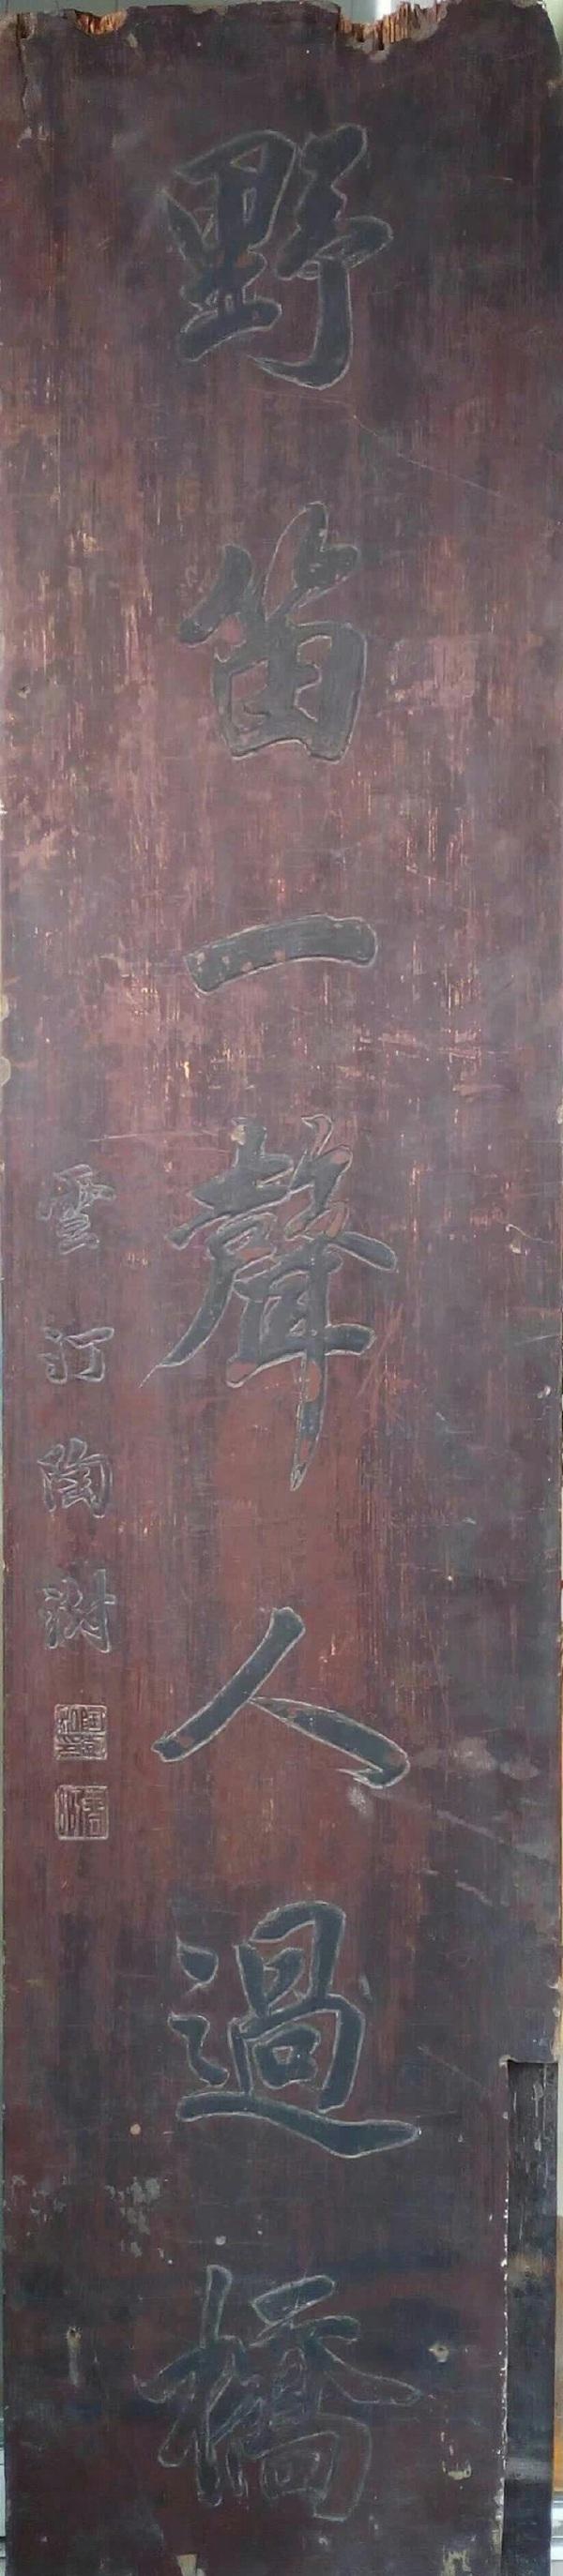 野笛一聲人過橋
雲汀陶澍